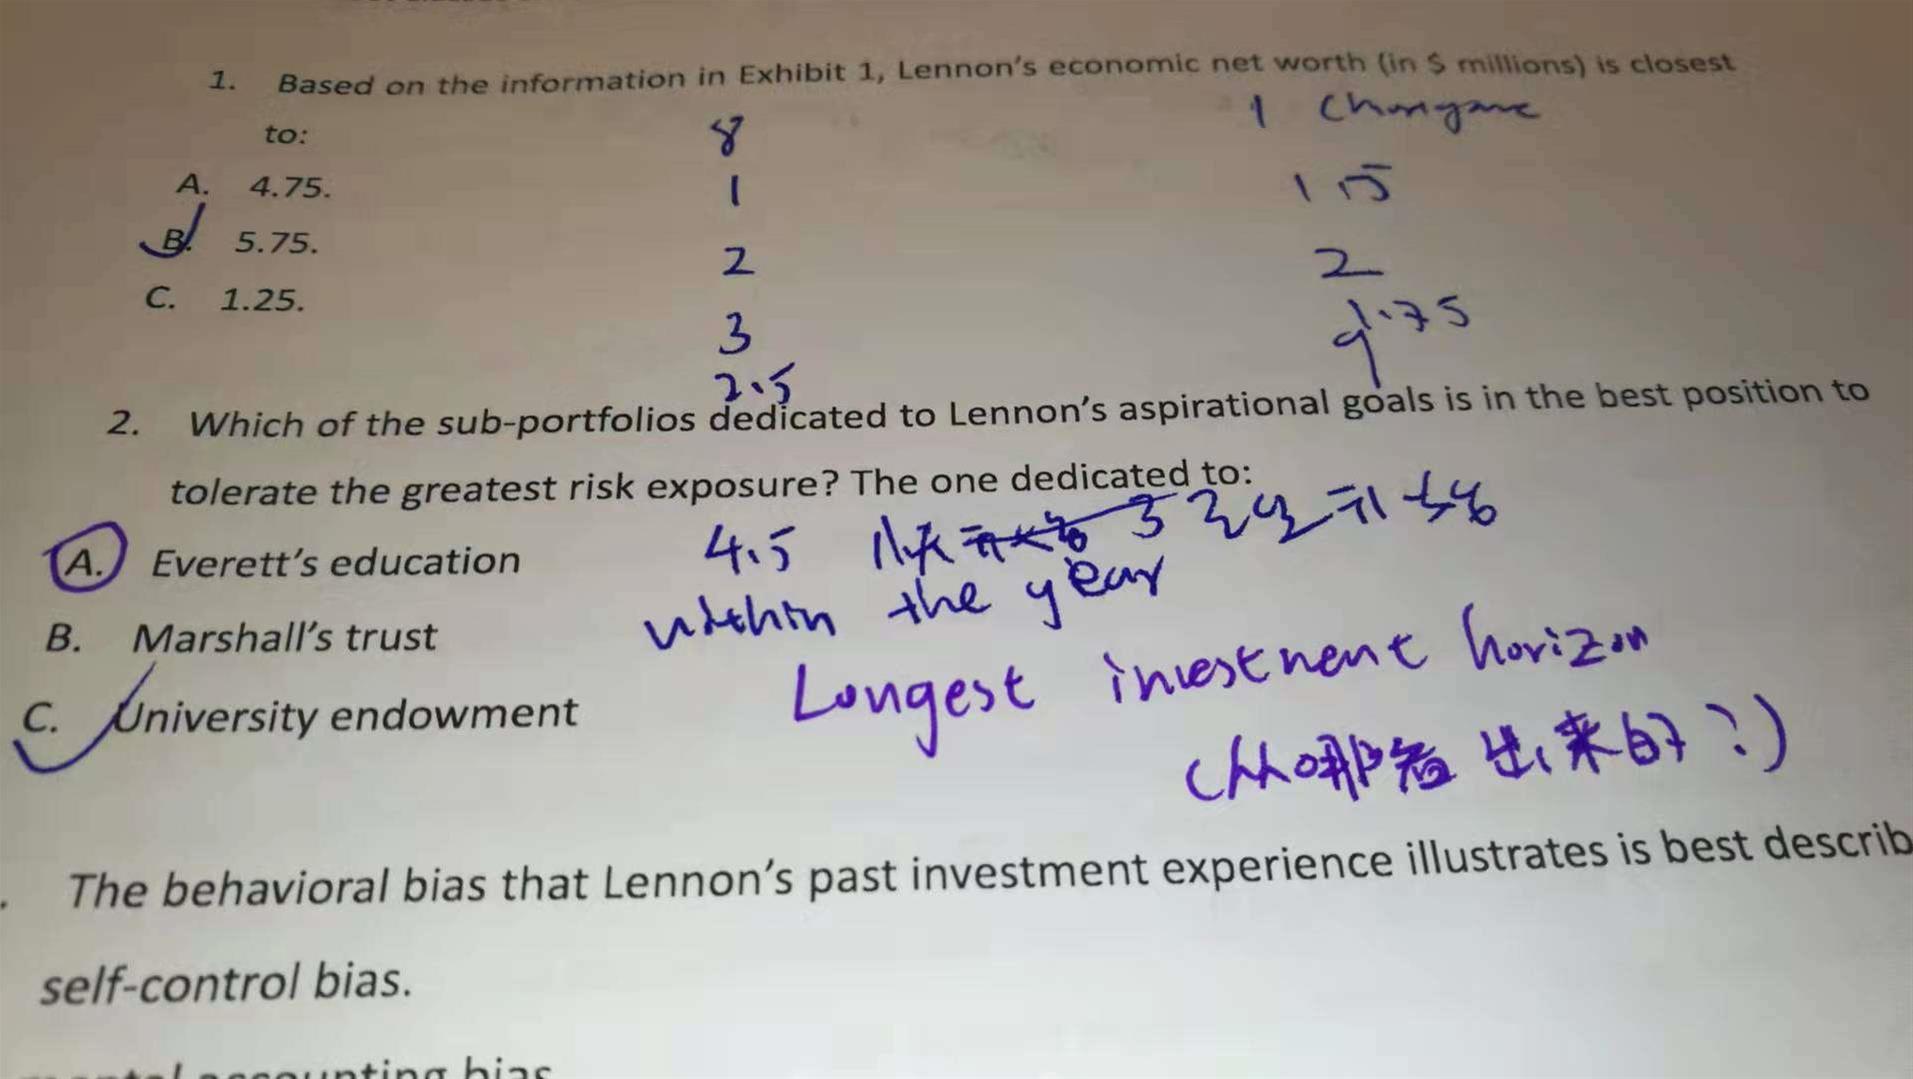 1. Based on the information in Exhibit 1, Lennon's economic net worth (in $ millions) is closest
to:
8
1
A. 4.75.
1
1.5
B. 5.75.
2
2
C. 1.25.
3
.75
2.5
2. Which of the sub-portfolios dedicated to Lennon's aspirational goals is in the best position to
tolerate the greatest risk exposure? The one dedicated to:
A. Everett's education
4.5
within the year
B. Marshall's trust
Longest investment horizon
C. University endowment
(从哪看出来的?)
. The behavioral bias that Lennon's past investment experience illustrates is best describ
self-control bias.
mental accounting bias